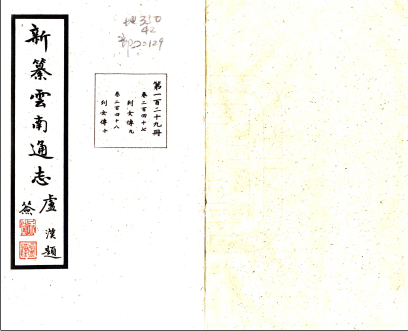 新纂雲南通志
盧漢題
簽
地350
42
部2:129
第一百二十九冊
卷二百四十七
列女傳九
卷二百四十八
列女傳十